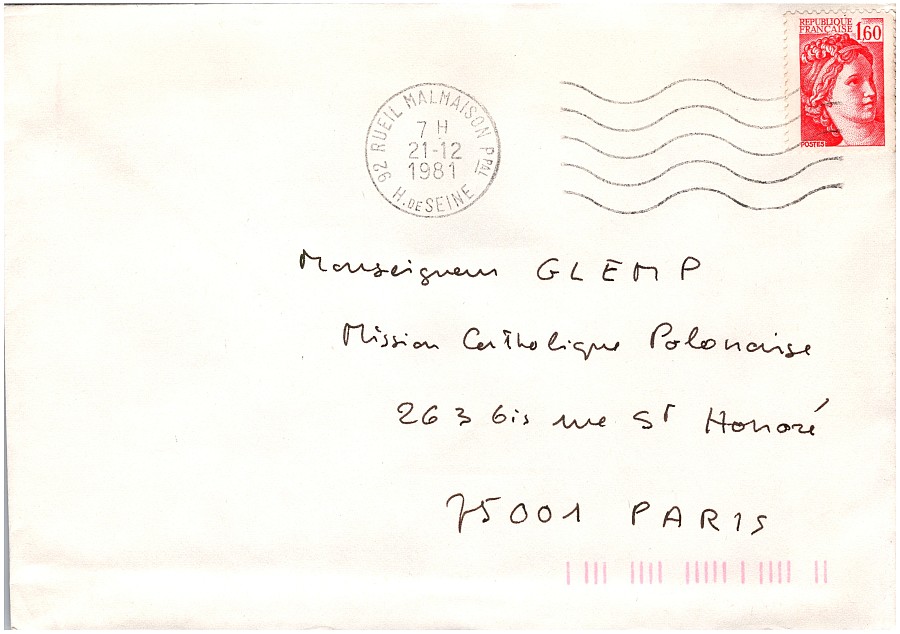 REPUBLIQUE
FRANÇAISE
1,60
POSTES
92 RUEIL MALMAISON PPAL
7 H
21-12
1981
H. DE SEINE
Monseigneur GLEMP
Mission Catholique Polonaise
263 bis rue St Honoré
75001 PARIS